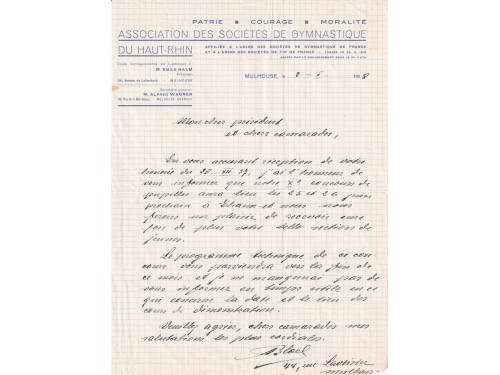 PATRIE ■ COURAGE ■ MORALITÉ
ASSOCIATION DES SOCIÉTÉS DE GYMNASTIQUE
DU HAUT-RHIN
AFFILIÉE A L'UNION DES SOCIÉTÉS DE GYMNASTIQUE DE FRANCE
ET A L'UNION DES SOCIÉTÉS DE TIR DE FRANCE
M. EMILE NALM
MULHOUSE
M. ALFRED WAGNER
MULHOUSE, le 8 - 1 1938
Mon cher président
et chers camarades,
En vous accusant réception de votre
du 20. XII 37, j'ai l'honneur de
vous informer que notre X° concours de
pupilles aura lieu les 25 et 26 juin
prochain à et nous nous
ferons un plaisir de recevoir une
fois de plus votre belle section de
jeunes.
Le programme technique de ce con-
cours vous parviendra vers la fin de
ce mois et je ne manquerai pas de
vous informer en temps utile en ce
qui concerne la date et le lieu des
cours de démonstration.
Veuillez agréer, chers camarades mes
salutations les plus cordiales.
44, rue Lavoisier
Mulhouse